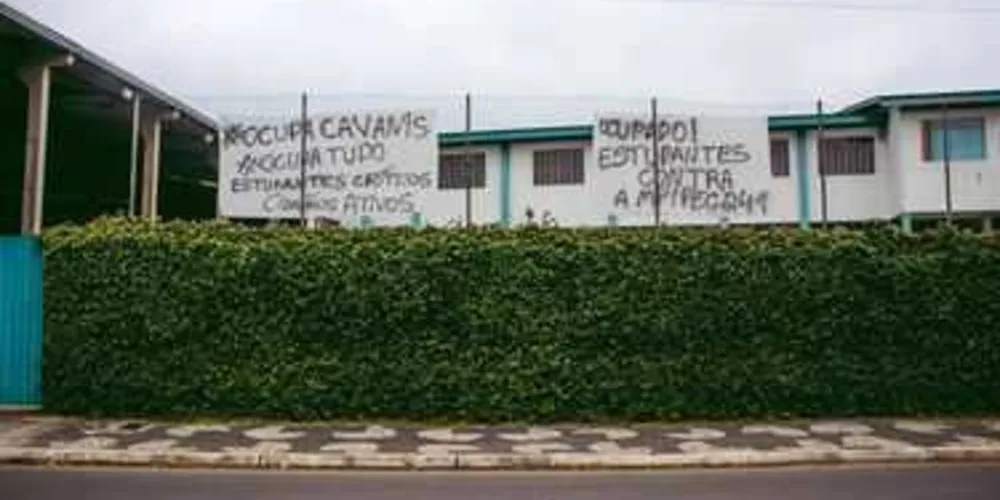 #OCUPA CAVANIS
#OCUPA TUDO
ESTUDANTES CRÍTICOS
ATIVOS
OCUPADO!
ESTUDANTES
CONTRA
A MP/PEC 241